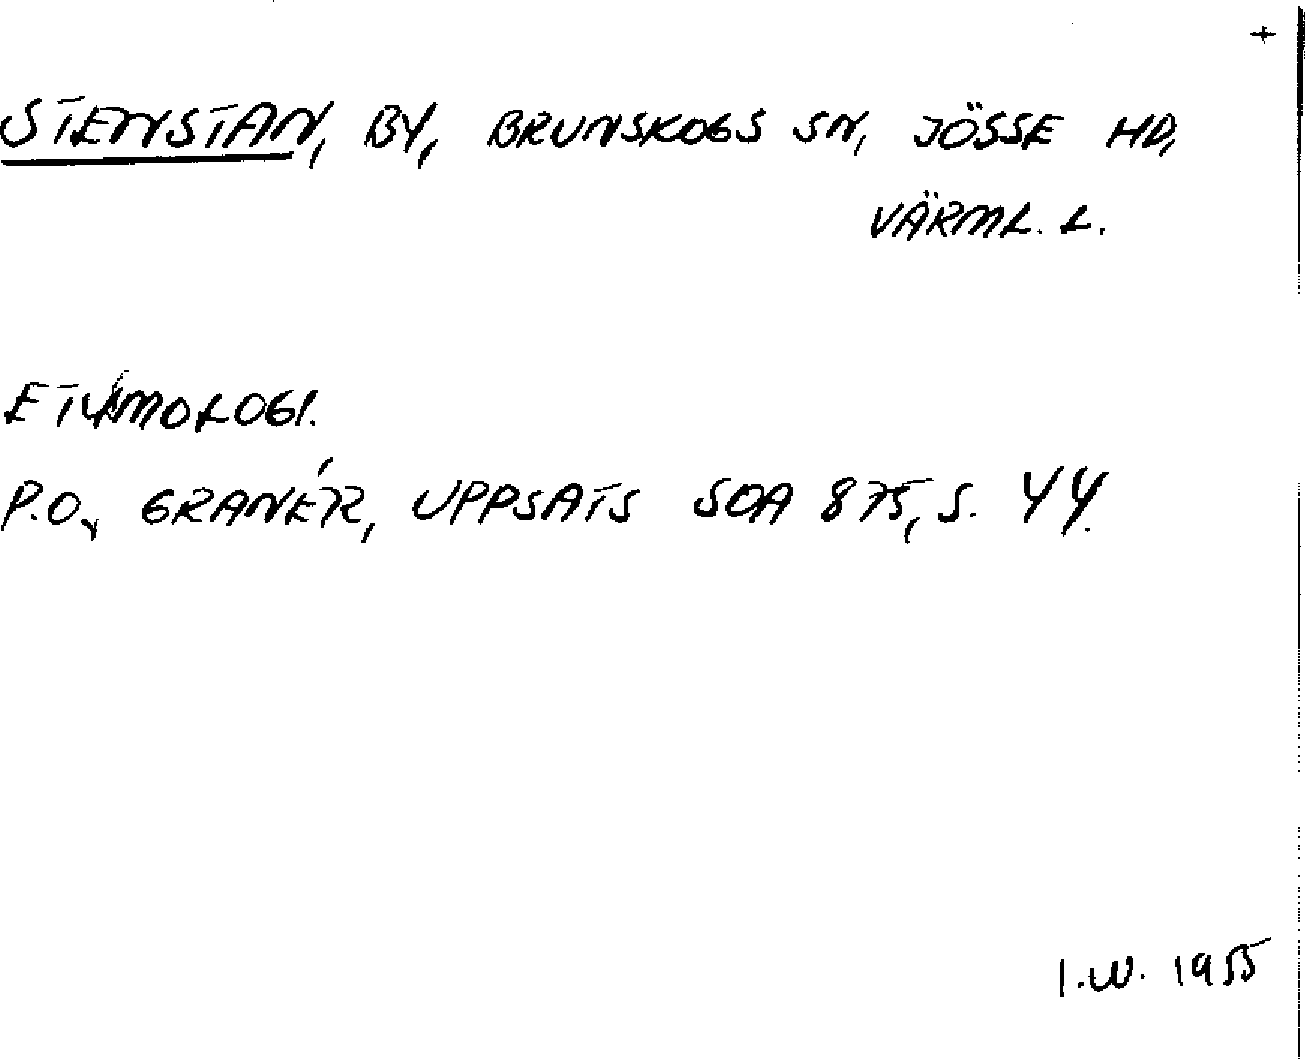 +
STENSTAN, BY, BRUNSKOGS SN, JÖSSE HD,
VÄRML. L.
ETYMOLOGI.
P.O., GRANÉR, UPPSATS SOA 875, S. 44.
I.W. 1955